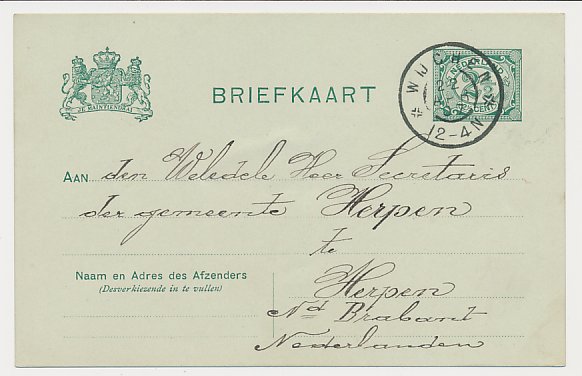 JE MAINTIENDRAI
BRIEFKAART
WIJCHEN
12-4N
AAN den Weledele Heer Secretaris
der gemeente Herpen
te
Herpen
Nd Brabant
Nederlanden
Naam en Adres des Afzenders
(Desverkiezende in te vullen)